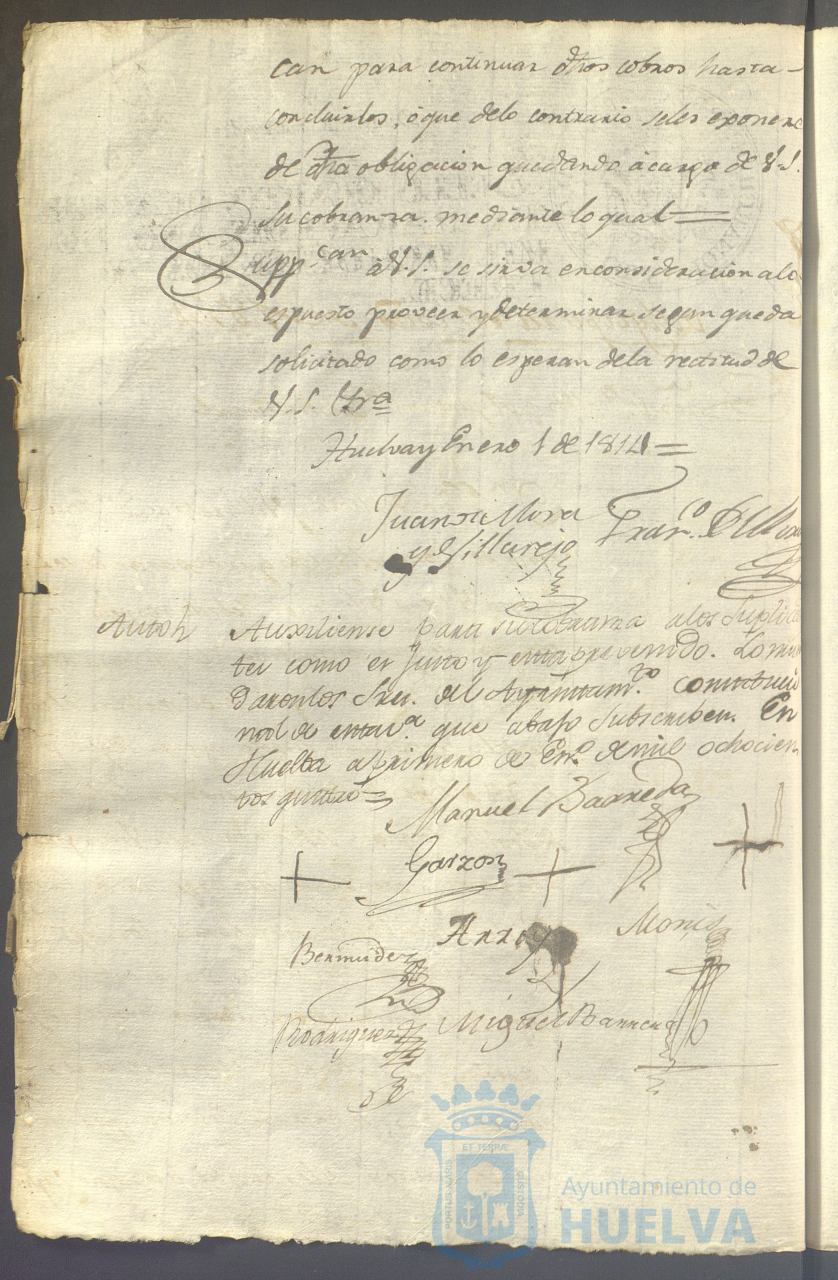 can para continuar dhos cobros hasta
concluirlos, o que delo contrario seles exonere
de dha obligacion quedando à cargo de V.S.
su cobranza. mediante lo qual
Supp.can à V.S. se sirva en consideracion alo
espuesto proveer y determinar segun queda
solicitado como lo esperan dela rectitud de
V.S. &ra
Huelva y Enero 1 de 1814
Juan de Mora
y Villarejo
Fran.co
Auto
Auxiliense para su cobranza alos Suplican
tes como es justo y esta prevenido. Lo man
daron los Sres. del Ayuntam.to constitucio
nal de esta v.a que abajo subscriben. En
Huelva a primero de En.o de mil ochocien
tos
Manuel Barreda
Garzon
Bermudez
Rodriguez
Miguel Barrera
ET TERRÆ
PORTUS MARIS
CUSTODIA
Ayuntamiento de
HUELVA